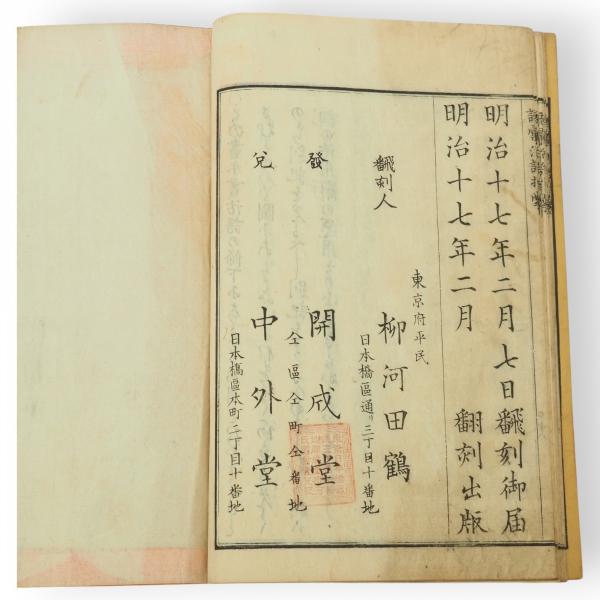 明治十七年二月七日飜刻御届
明治十七年二月　翻刻出版
東京府平民
飜刻人　柳河田鶴
日本橋區通リ三丁目十番地
發　開成堂
仝區仝町仝番地
兌　中外堂
日本橋區本町二丁目十番地